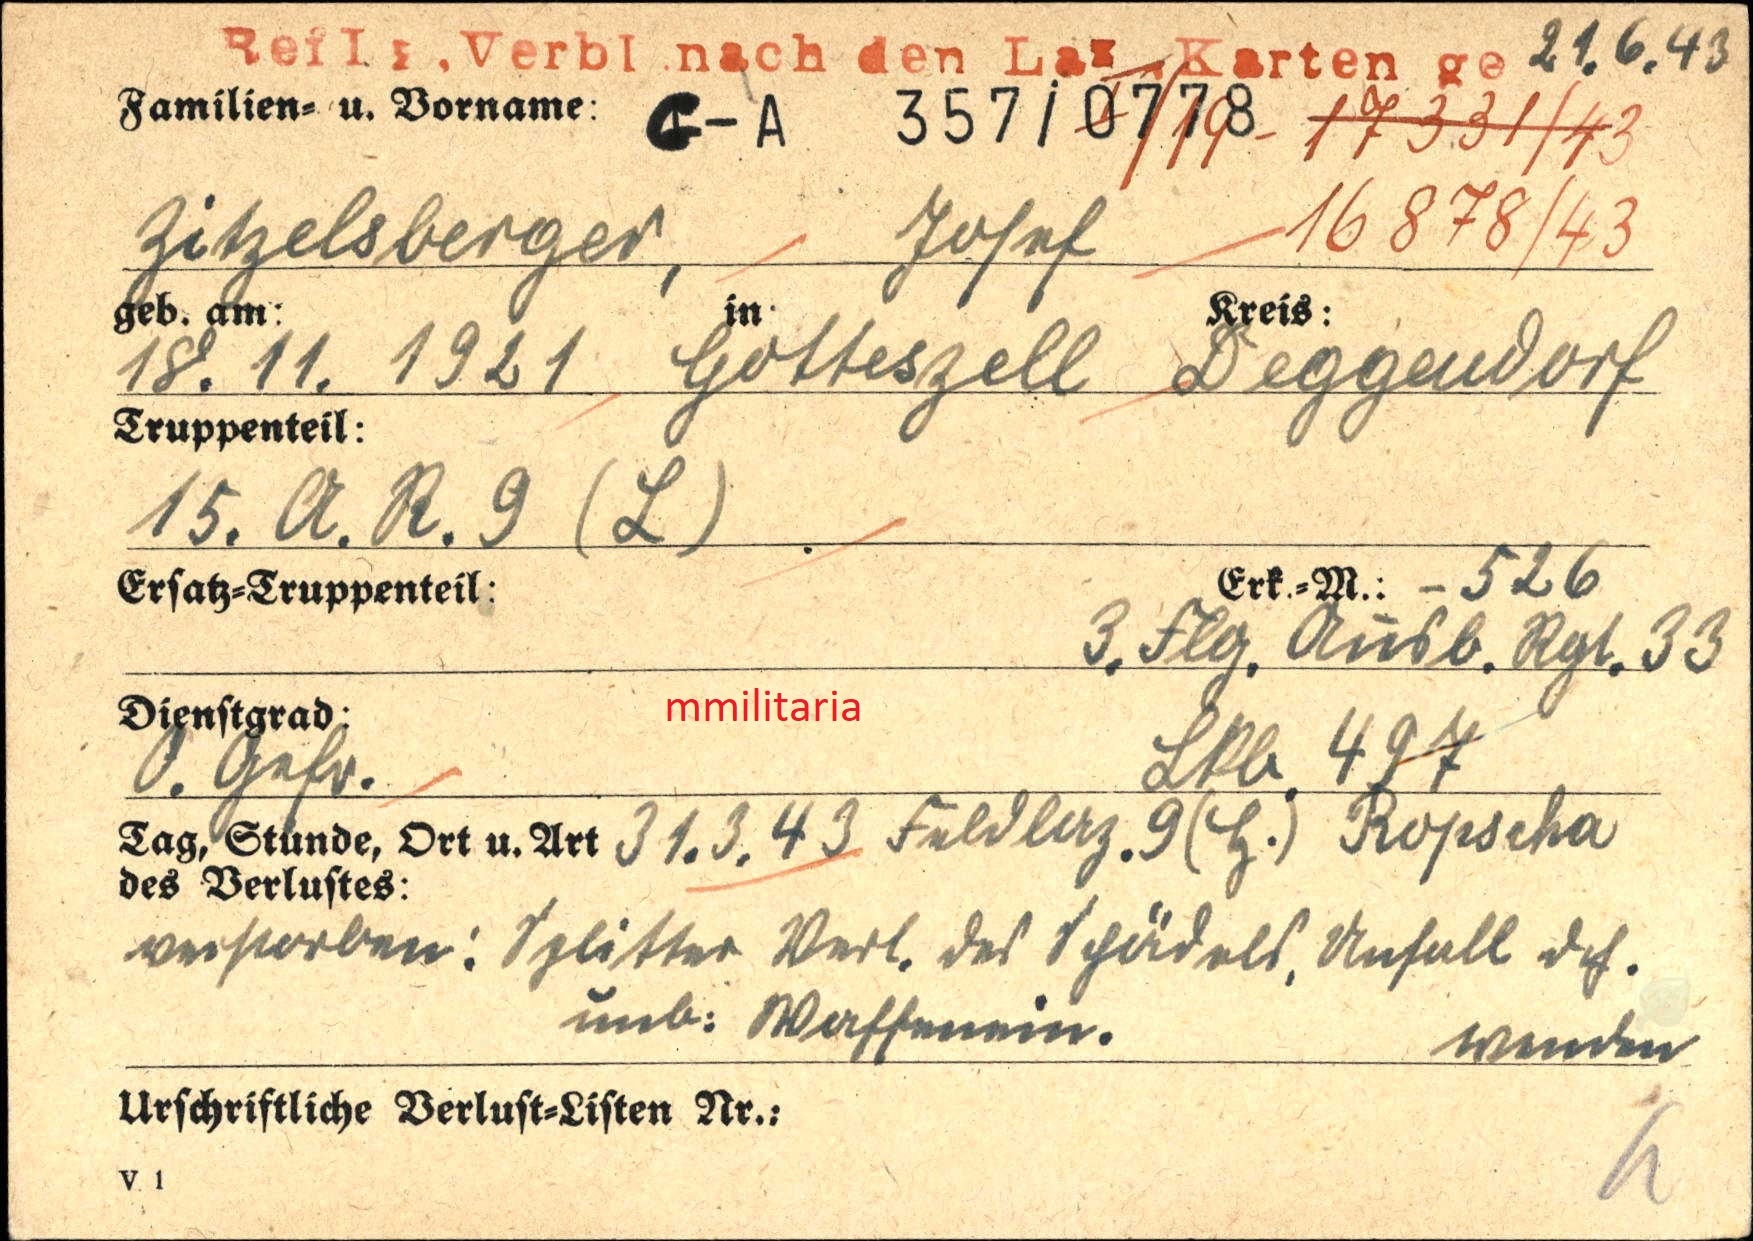 Verbl nach den Laz.Karten ge 21.6.43
Familien- u. Vorname: G-A 357/0778 17331/43
Zitzelsberger, Josef 16878/43
geb. am: in: Kreis:
18. 11. 1921 Gotteszell Deggendorf
Truppenteil:
15. A. R. 9 (L)
Ersatz-Truppenteil: Erk.-M.: - 526
3. Flg. Ausb. Rgt. 33
Dienstgrad: mmilitaria
O. Gefr. 497
Tag, Stunde, Ort u. Art 31.3.43 Feldlaz. 9 (H.) Ropscha
des Verlustes:
verstorben: Splitter Verl. des Schädels, Unfall dch.
unb: Waffenein.
wenden
Urschriftliche Verlust-Listen Nr.:
V. 1